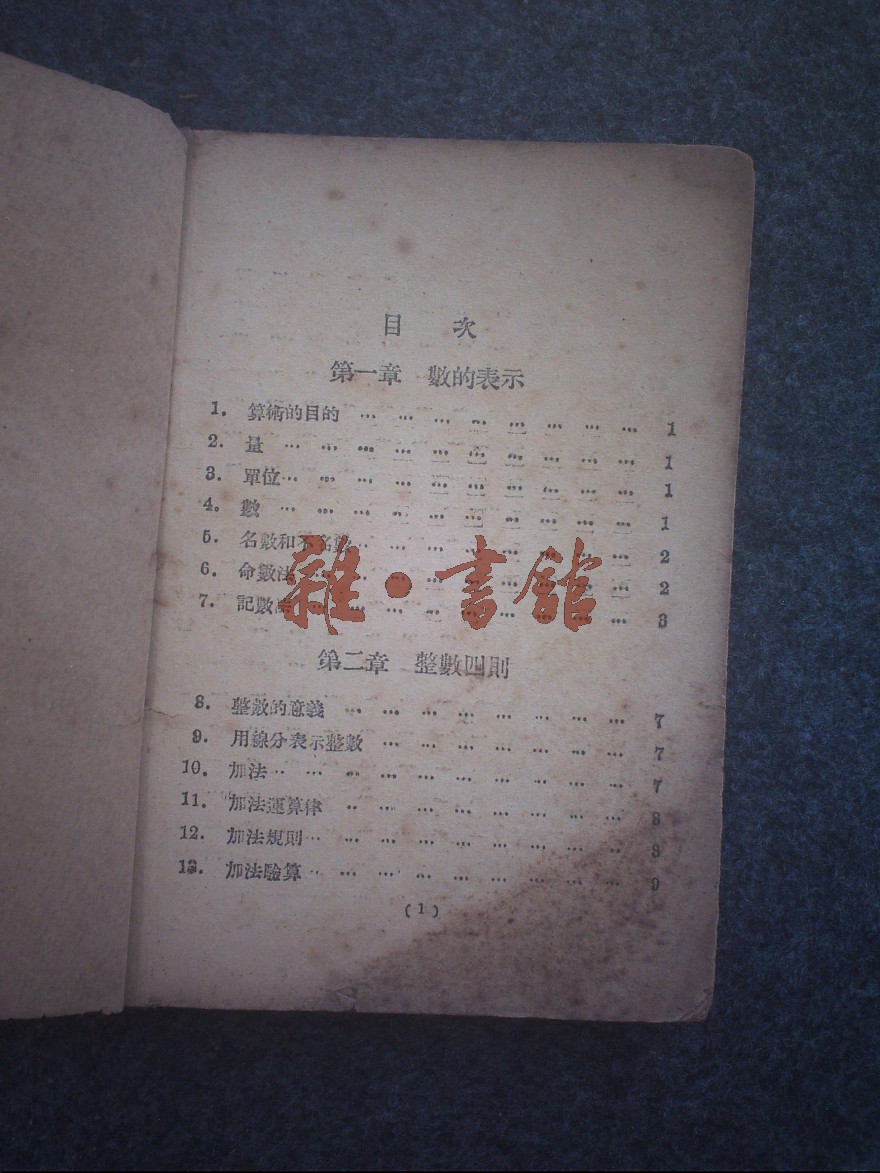 目 次
第一章 數的表示
1. 算術的目的 … … … … … … … … 1
2. 量 … … … … … … … … … … 1
3. 單位 … … … … … … … … … … 1
4. 數 … … … … … … … … … … 1
5. 名數和不名數 … … … … … … … … 2
6. 命數法 … … … … … … … … … 2
7. 記數法 … … … … … … … … … 3
雜·書館
第二章 整數四則
8. 整數的意義 … … … … … … … … 7
9. 用線分表示整數 … … … … … … … 7
10. 加法 … … … … … … … … … … 7
11. 加法運算律 … … … … … … … … 8
12. 加法規則 … … … … … … … … … 8
13. 加法驗算 … … … … … … … … … 9
(1)